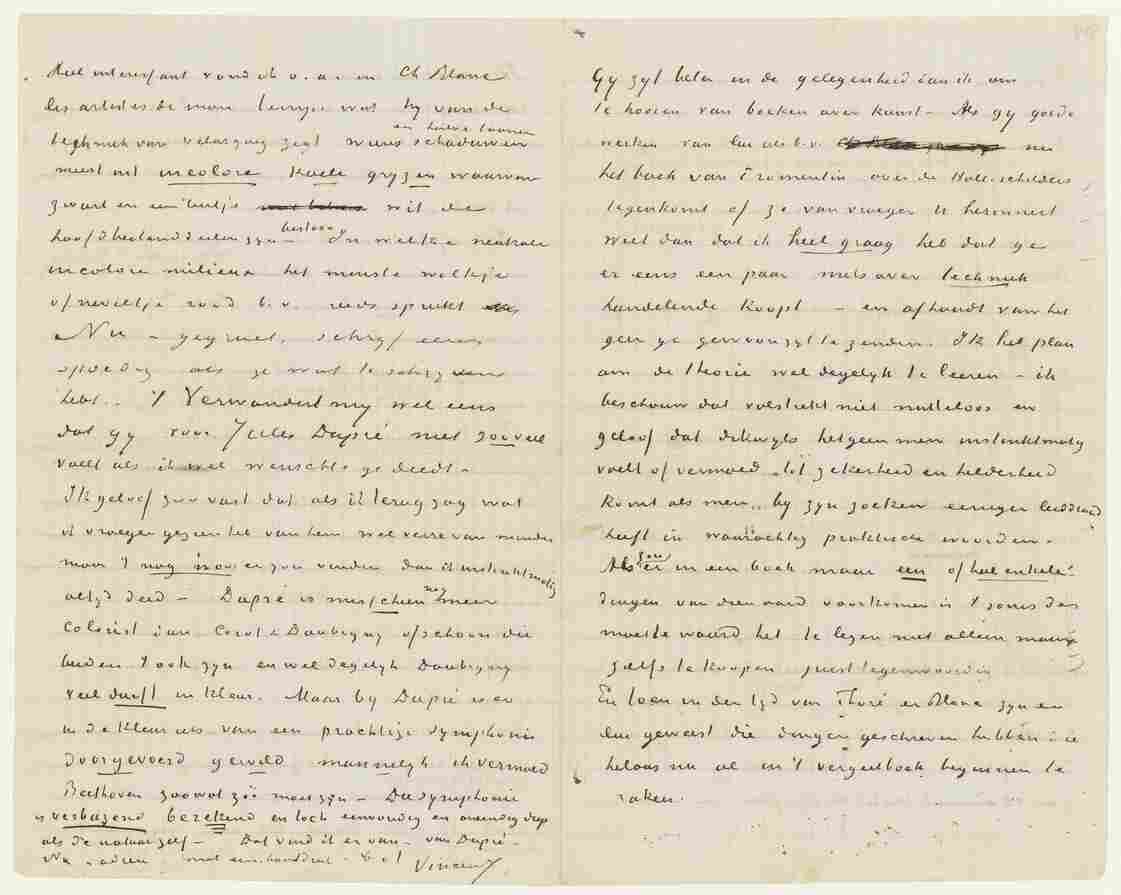 Heel interessant vond ik o.a. in Ch Blanc
les artistes de mon temps wat hij van de
techniek van Velasquez zegt wiens schaduwen
en halve toonen
meest uit incolore koele grijzen waarvan
zwart en een beetje wit de
hoofdbestanddeelen zijn bestaan – In welke neutrale
incolore milieux het minste wolkje
of neveltje rood b.v. reeds spreekt
Nu – gegroet, schrijf eens
spoedig als ge wat te schrijven
hebt. 't Verwondert mij wel eens
dat gij voor Jules Dupré niet zooveel
voelt als ik wel wenschte ge deedt –
Ik geloof zoo vast dat als ik terug zag wat
ik vroeger gezien heb van hem wel verre van minder
mooi 't nog mooier zou vinden dan ik instinktmatig
altijd deed – Dupré is misschien nog meer
Colorist dan Corot & Daubigny ofschoon die
beiden 't ook zijn en wel degelijk Daubigny
veel durft in kleur. Maar bij Dupré is er
in de kleur iets van een prachtige symphonie
doorgevoerd gewild mannelijk ik vermoed
Beethoven zoowat zóó moet zijn – Die symphonie
is verbazend berekend en toch eenvoudig en oneindig diep
als de natuur zelf – Dat vind ik er van – van Dupré –
Nu – adieu met een handdruk – b. à t Vincent
Gij zijt beter in de gelegenheid dan ik om
te hooren van boeken over kunst – Als gij goede
werken van lui als b.v. nu
het boek van Fromentin over de Holl. schilders
tegenkomt of ze van vroeger U herinnert
weet dan dat ik heel graag heb dat ge
er eens een paar mits over techniek
handelende koopt – en afhoudt van het
geen ge gewoon zijt te zenden. Ik heb plan
om de theorie wel degelijk te leeren – ik
beschouw dat volstrekt niet nutteloos en
geloof dat dikwijls hetgeen men instinktmatig
voelt of vermoed tot zekerheid en helderheid
komt als men bij zijn zoeken eeniger leiddraad
heeft in waarachtig praktische woorden.
Als er zou in een boek maar een of heel enkele
dingen van dien aard voorkomen is 't soms de
moeite waard het te lezen niet alleen maar
zelfs te koopen juist tegenwoordig
En toen in den tijd van Thoré en Blanc zijn er
lui geweest die dingen geschreven hebben die
helaas nu al in 't vergeetboek beginnen te
raken.